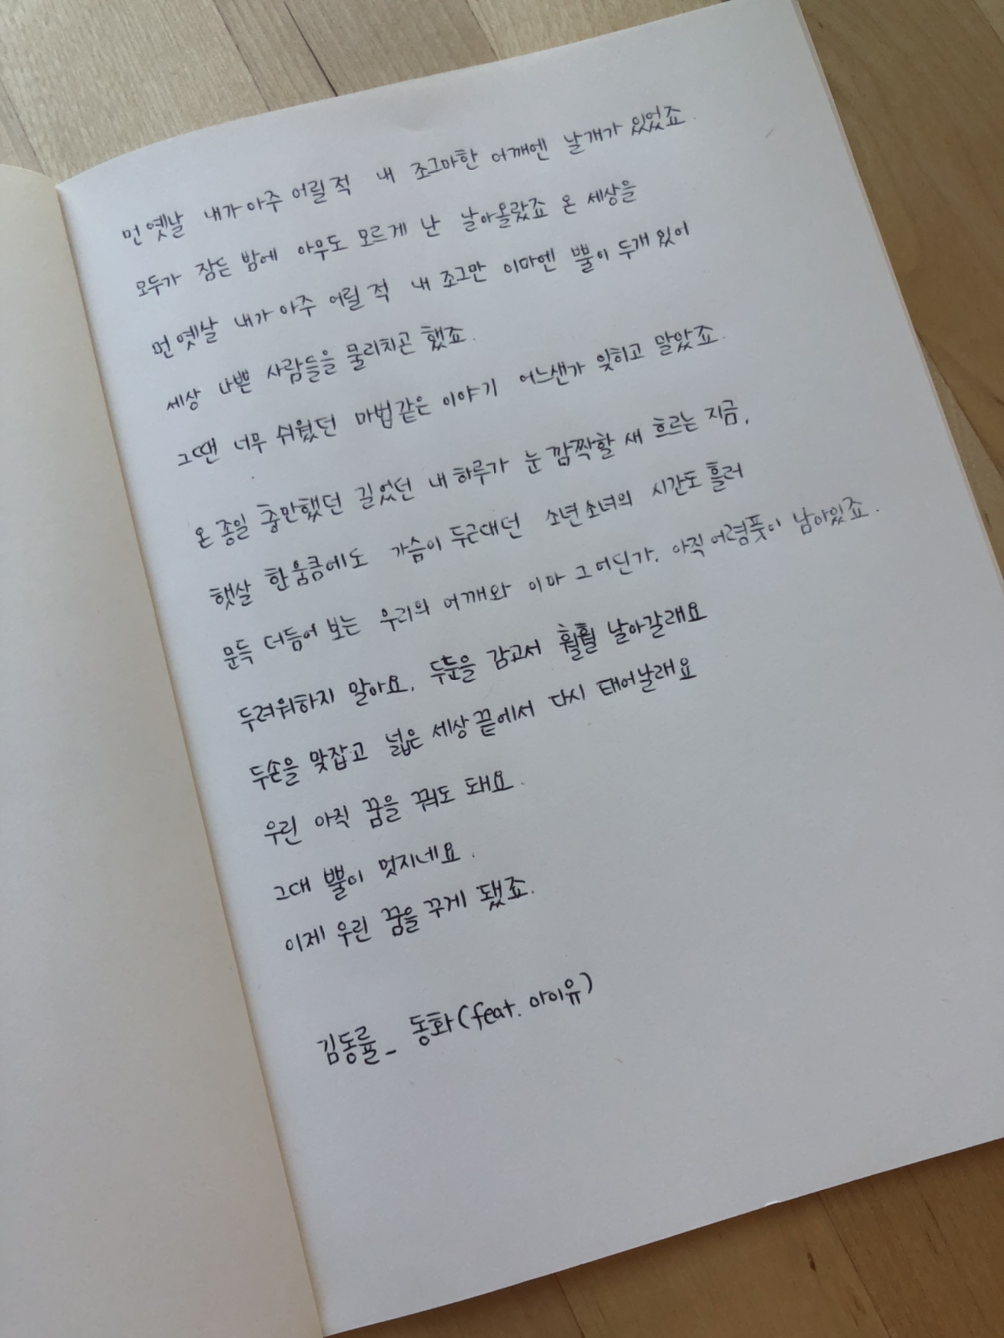 먼 옛날 내가 아주 어릴 적 내 조그마한 어깨엔 날개가 있었죠.
모두가 잠든 밤에 아무도 모르게 난 날아올랐죠 온 세상을
먼 옛날 내가 아주 어릴 적 내 조그만 이마엔 뿔이 두개 있어
세상 나쁜 사람들을 물리치곤 했죠.
그땐 너무 쉬웠던 마법같은 이야기 어느샌가 잊히고 말았죠.
온종일 충만했던 길었던 내 하루가 눈 깜짝할 새 흐르는 지금,
햇살 한 움큼에도 가슴이 두근대던 소년 소녀의 시간도 흘러
문득 더듬어 보는 우리의 어깨와 이마 그 어딘가. 아직 어렴풋이 남아있죠.
두려워하지 말아요. 두눈을 감고서 훨훨 날아갈래요
두손을 맞잡고 넓은 세상 끝에서 다시 태어날래요
우린 아직 꿈을 꿔도 돼요.
그대 뿔이 멋지네요.
이제 우린 꿈을 꾸게 됐죠.
김동률_ 동화(feat. 아이유)